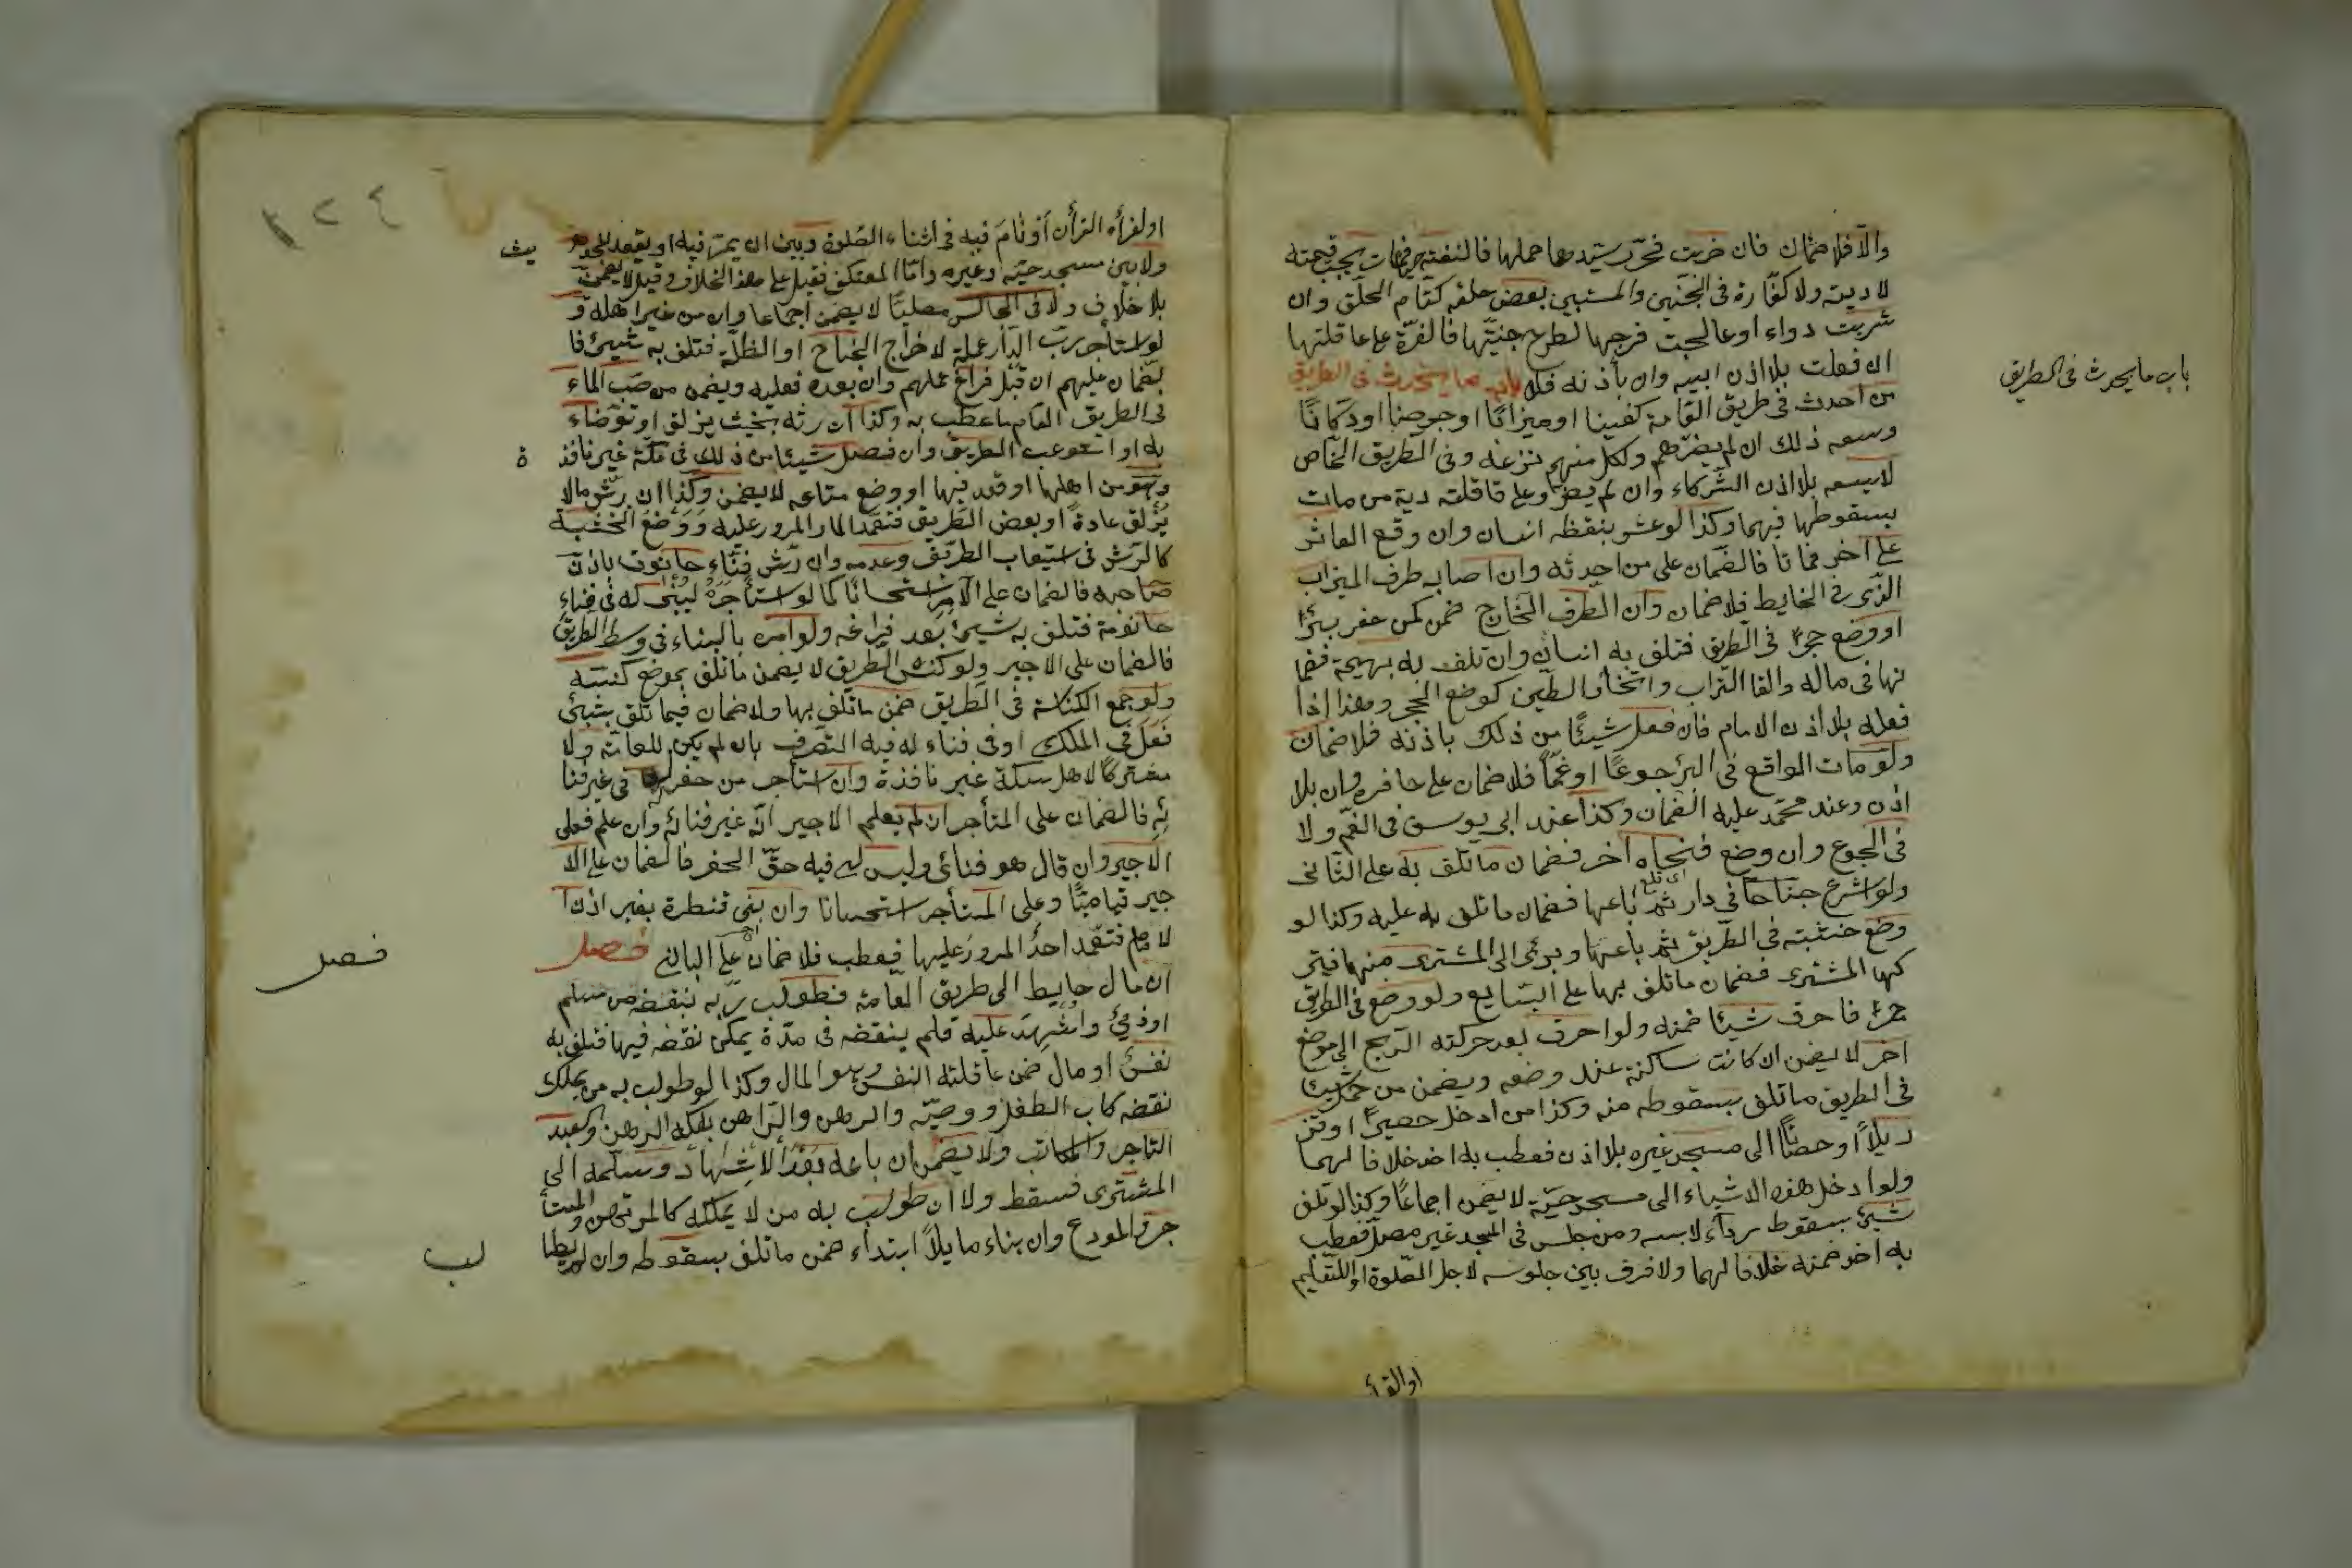 والا فلا ضمان فان ضربت فحرر سيدها حملها فالقته فمات يجب قيمته
لا ديته ولا كفارة فى الجنين والمستبين بعض خلقه كتام الخلق وان
شربت دواء او عالجت فرجها لطرح جنينها فالغرة على عاقلتها
ان فعلت بلا اذن ابيه وان بأذنه فلا باب ما يحدث فى الطريق
باب ما يحدث فى الطريق
من احدث فى طريق العامة كنيفا او ميزابا او جرصنا او دكانا
وسعه ذلك ان لم يضرهم ولكل منهم نزعه وفى الطريق الخاص
لا يسعه بلا اذن الشركاء وان لم يضر وعلى قاقلته دية من مات
بسقوطها فيهما وكذا لو عثر بنقظه انسان وان وقع العاثر
على اخر فماتا فالضمان على من احدثه وان اصابه طرف الميزاب
الذى فى الحايط فلا ضمان وان الطرف الخارج ضمن كمن حفر بئرا
او وضع حجرا فى الطريق فتلف به انسان وان تلف به بهيمة فضما
نها فى ماله والقا التراب واتخاذ الطين كوضع الحجر وهذا اذا
فعله بلا اذن الامام فان فعل شيئا من ذلك باذنه فلا ضمان
ولو مات الواقع فى البئر جوعا او غما فلا ضمان على حافره وان بلا
اذن وعند محمد عليه الضمان وكذا عند ابى يوسف فى الغم ولا
فى الجوع وان وضع فنحاه اخر فضمان ما تلف به على الثانى
ولو اشرع جناحا فى دار ثم باعها فضمان ما تلف به عليه وكذا لو
وضع خشبته فى الطريق ثم باعها وبرئ الى المشترى منها فتر
كها المشترى فضمان ما تلف بها على البايع ولو وضع فى الطريق
جمرا فاحرق شيئا ضمنه ولو احرق بعد حركته الريح الى موضع
اخر لا يضمن ان كانت ساكنة عند وضعه ويضمن من حمل شيئا
فى الطريق ما تلف بسقوطه منه وكذا من ادخل حصيرا او قنـ
ديلا او حصبا الى مسجد غيره بلا اذن فعطب به احد خلافا لهما
ولو ادخل هذه الاشياء الى مسجد حيه لا يضمن اجماعا وكذا لو تلف
شيئ بسقوط رداء لابسه ومن جلس فى المسجد غير مصل فعطب
به احد ضمنه خلافا لهما ولا فرق بين جلوسه لاجل الصلوة او للتعليم
او القرأ
١٢٤
او لقرأه القرأن او نام فيه فى اثناء الصلوة وبين ان يمر فيه او يقعد للحد يث
ولا بين مسجد حيه وغيره واما المعتكف فقيل على هذا الخلاف وقيل لا يضمن
بلا خلاف ولا فى الجالس مصليا لا يضمن اجماعا وان من غير اهله و
لو استأجر رب الدار عملة لاخراج الجناح او الظلة فتلف به شيئ فا
لضمان عليهم ان قبل فراغ عملهم وان بعده فعليه ويضمن من صب الماء
فى الطريق العام ما عطب به وكذا ان رشه بحيث يزلق او توضاء
به او استوعب الطريق وان فعل شيئا من ذلك فى سكة غير نافذ ة
وهو من اهلها او قعد فيها او وضع متاعه لا يضمن وكذا ان رش ما لا
يزلق عادة او بعض الطريق فتعمد المار المرور عليه ووضع الخشبة
كالرش فى استيعاب الطريق وعدمه وان رش فناء حانوت باذن
صاحبه فالضمان على الآمر استحسانا كما لو استأجره ليبنى له فى فناء
حانوته فتلف به شيئ بعد فراغه ولو امره بالبناء فى وسط الطريق
فالضمان على الاجير ولو كنس الطريق لا يضمن ما تلف بموضع كنسه
ولو جمع الكناسة فى الطريق ضمن ما تلف بها ولا ضمان فيما تلف بشيئ
فعل فى الملك او فى فناء له فيه التصرف بان لم يكن للعامة ولا
مشتركا لاهل سكة غير نافذة وان استأجر من حفر له فى غير فنا
ئه فالضمان على المتأجر ان لم يعلم الاجير انه غير فنائه وان علم فعلى
الاجير وان قال هو فنائى وليس لى فيه حق الحفر فالضمان على الا
جير قياسا وعلى المستأجر استحسانا وان بنى قنطرة بغير اذن ا
لامام فتعمد احد المرور عليها فعطب فلا ضمان على البانى فصل
فصل
ان مال حايط الى طريق العامة فطولب ربه بنقضه من مسلم
او ذمئ واشهد عليه فلم ينقضه فى مدة يمكن نقضه فيها فتلف به
نفس او مال ضمن عاقلته النفس وهو المال وكذا لو طولب به من يملك
نقضه كاب الطفل ووصيه والرهن والراهن بفكه الرهن والعبد
التاجر والمكاتب ولا يضمن ان باعه بعد الاشهاد وسلمه الى
المشترى فسقط ولا ان طولب به من لا يملكه كالمرتهن والمستأ
جر والمودع وان بناء مايلا ابتداء ضمن ما تلف بسقوطه وان لم يطا
لب